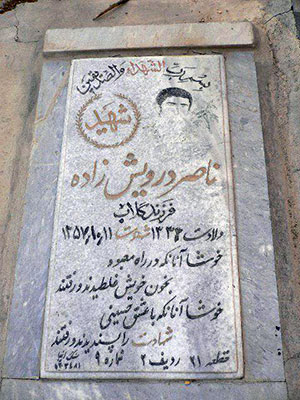 بسم رب الشهداء والصدیقین
شهید
ناصر درویش زاده
فرزند گلاب
ولادت ۱۳۳۲ شهادت ۱۱،۱۰،۱۳۵۷
خوشا آنانکه در راه معبود
بخون خویش غلطیدند و رفتند
خوشا آنانکه با عشق حسینی
شهادت را پسندیدند و رفتند
قطعه ۲۱ ردیف ۲ شماره ۹